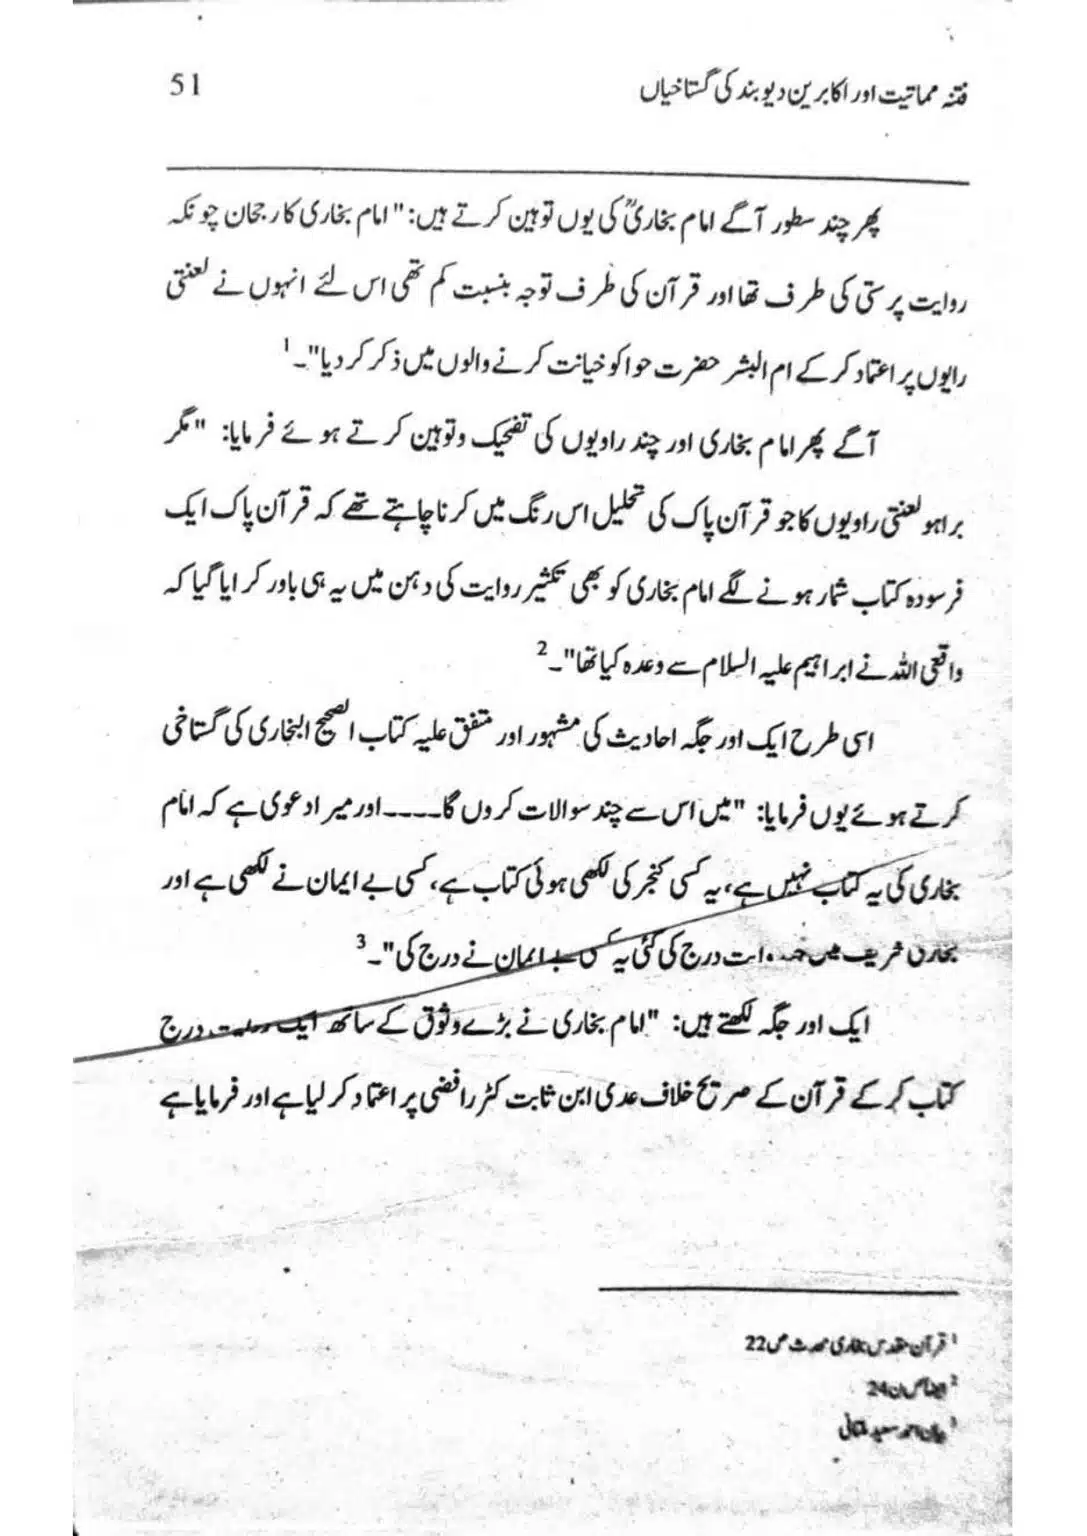 فتنہ مماتیت اور اکابرین دیوبند کی گستاخیاں 51
پھر چند سطور آگے امام بخاریؒ کی یوں توہین کرتے ہیں: "امام بخاری کا رجحان چونکہ
روایت پرستی کی طرف تھا اور قرآن کی طرف توجہ بنسبت کم تھی اس لئے انہوں نے لعنتی
رایوں پر اعتماد کر کے ام البشر حضرت حوا کو خیانت کرنے والوں میں ذکر کر دیا"۔1
آگے پھر امام بخاری اور چند راویوں کی تضحیک و توہین کرتے ہوئے فرمایا: "مگر
براہو لعنتی راویوں کا جو قرآن پاک کی تحلیل اس رنگ میں کرنا چاہتے تھے کہ قرآن پاک ایک
فرسودہ کتاب شمار ہونے لگے امام بخاری کو بھی تکثیر روایت کی دہن میں یہ ہی باور کرایا گیا کہ
واقعی اللہ نے ابراہیم علیہ السلام سے وعدہ کیا تھا"۔2
اسی طرح ایک اور جگہ احادیث کی مشہور اور متفق علیہ کتاب الصحیح البخاری کی گستاخی
کرتے ہوئے یوں فرمایا: "میں اس سے چند سوالات کروں گا۔۔۔۔اور میرا دعوی ہے کہ امام
بخاری کی یہ کتاب نہیں ہے، یہ کسی کنجر کی لکھی ہوئی کتاب ہے، کسی بے ایمان نے لکھی ہے اور
بخاری شریف میں درج کی گئی یہ کسی بے ایمان نے درج کی"۔3
ایک اور جگہ لکھتے ہیں: "امام بخاری نے بڑے وثوق کے ساتھ ایک روایت درج
کتاب کر کے قرآن کے صریح خلاف عدی ابن ثابت کٹر رافضی پر اعتماد کر لیا ہے اور فرمایا ہے
1 قرآن مقدس بخاری محدث ص 22
2 ایضا ص ن 24
3